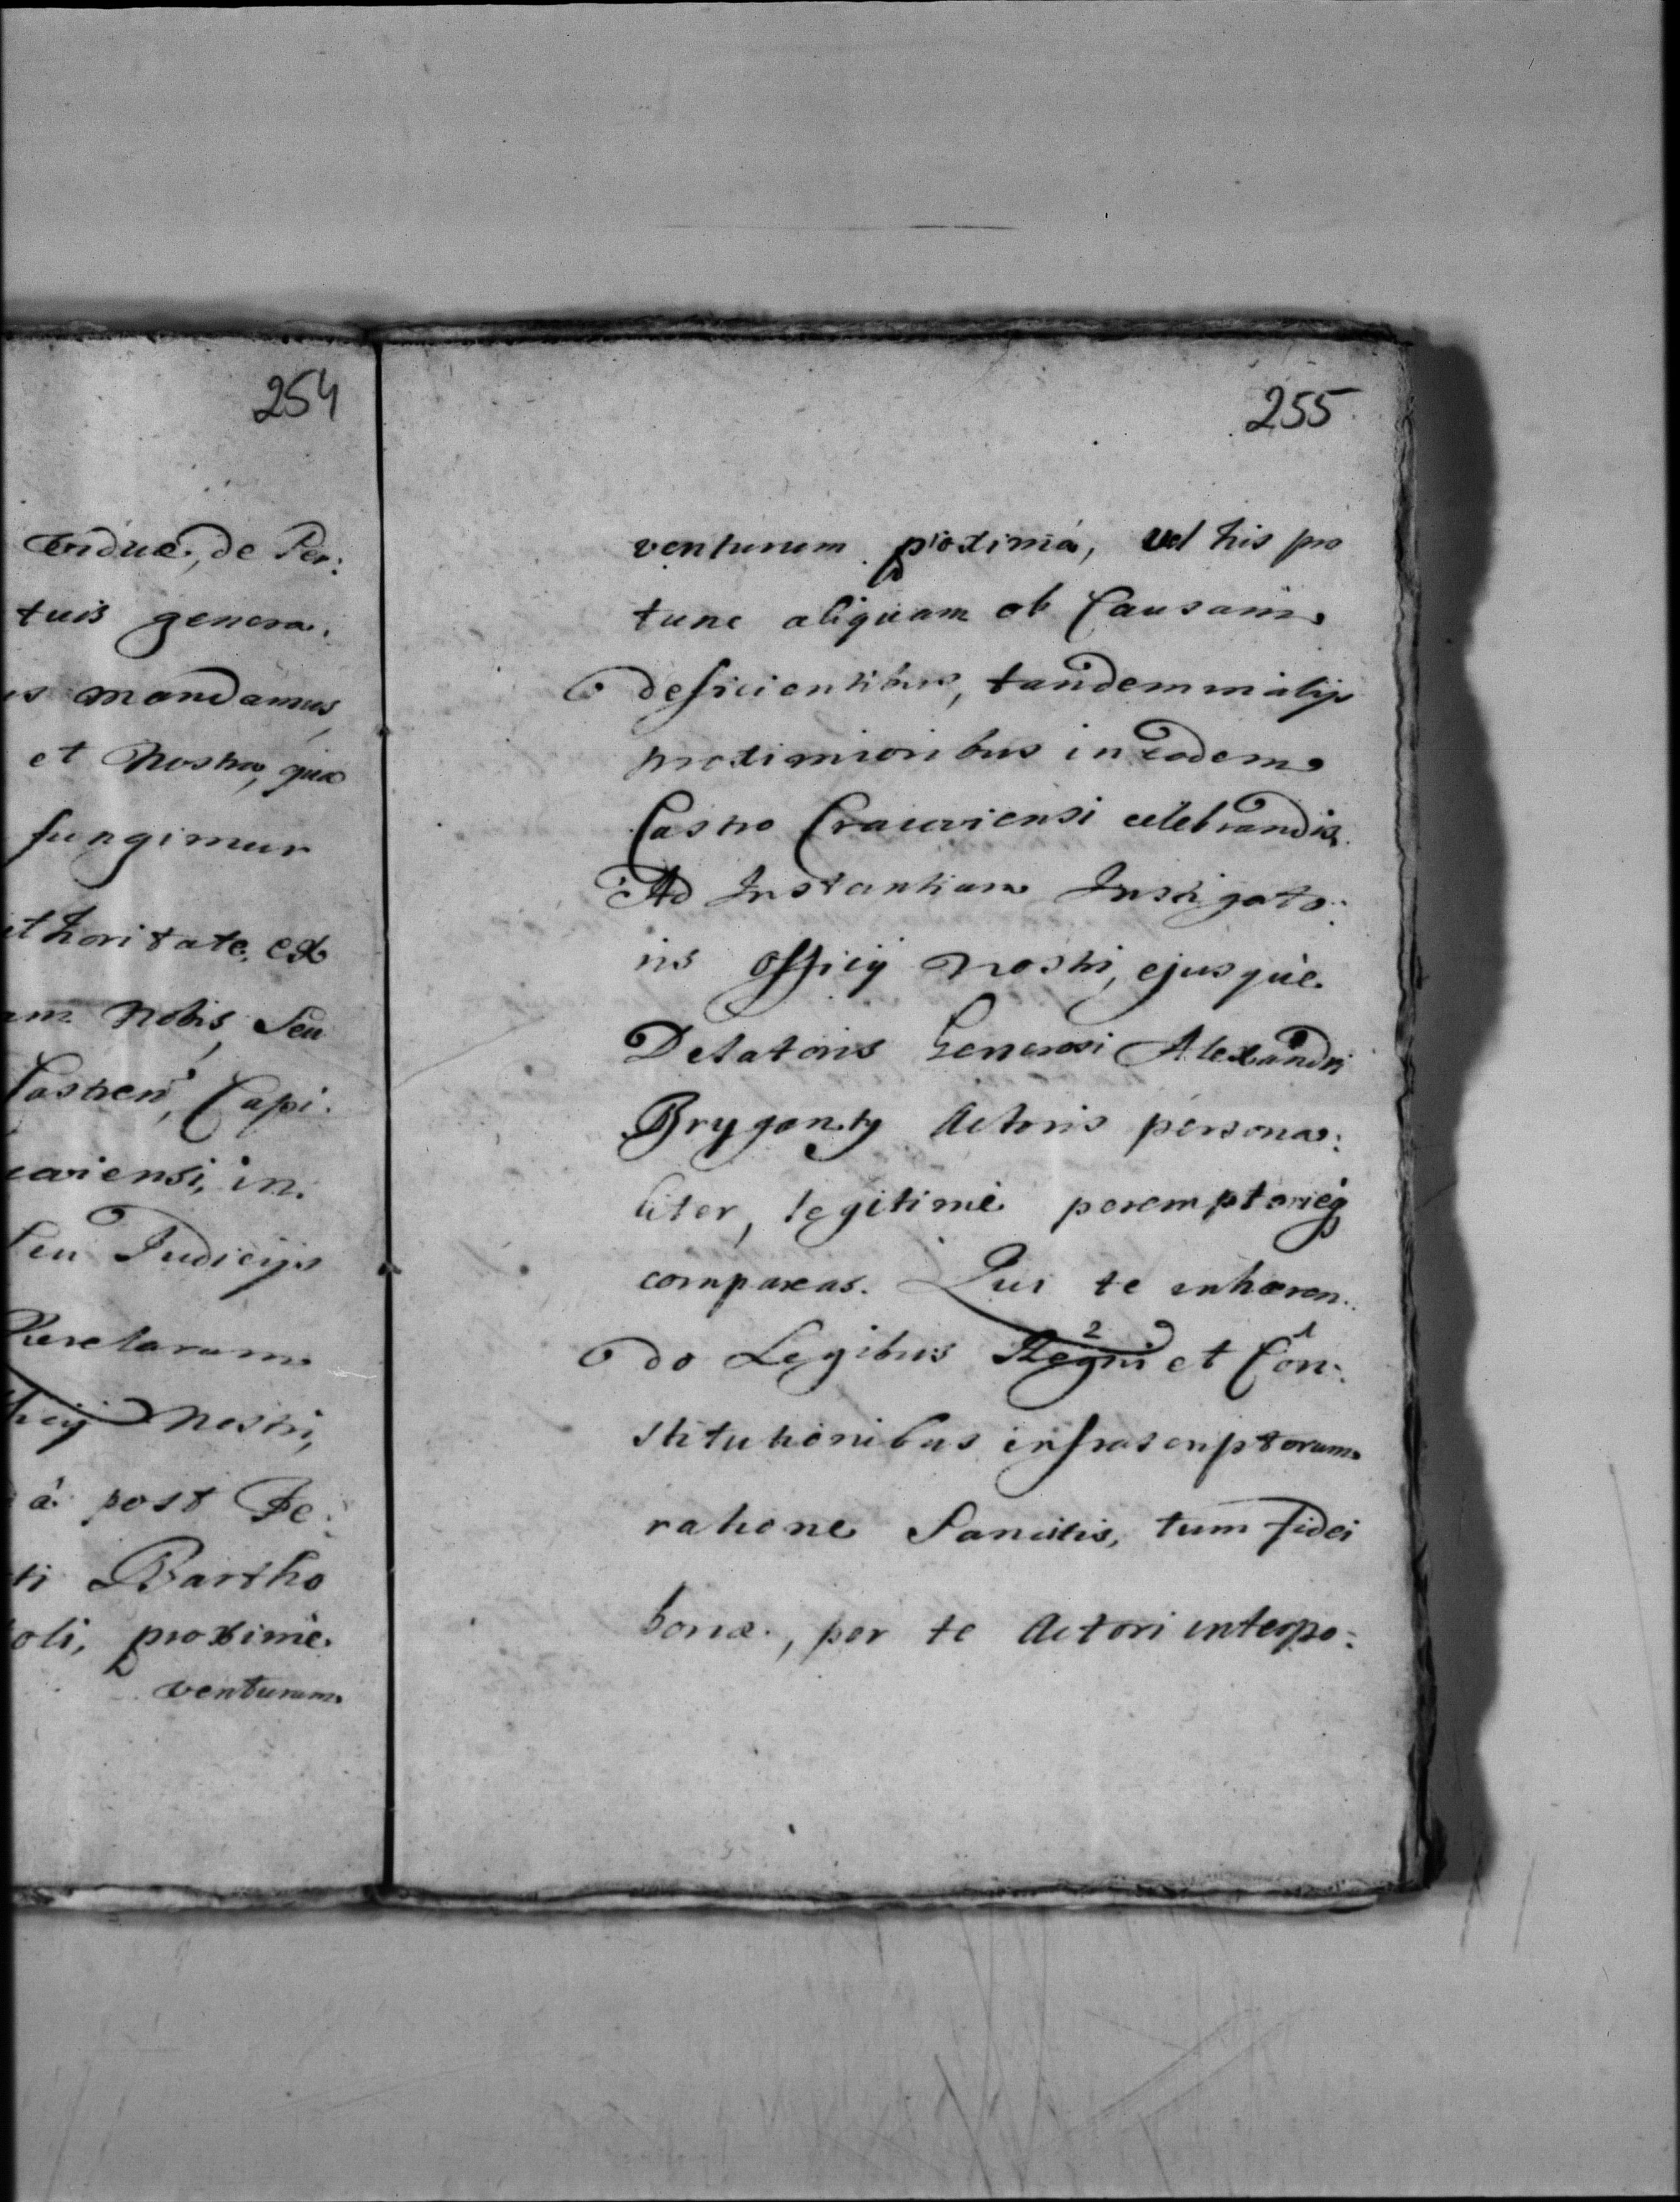 254
viduæ, de Per:
tuis genera.
is mandamus
et Nostra, qua
fungimur
thoritate, ex
am Nobis, seu
Castren, Capi.
coviensi, in.
seu Judicijs
Querelarum
ficij Nostri,
à post Fe:
ti Bartho
oli, proximè
venturum
255
venturum proximà, vel his pro
tunc aliquam ob Causam
deficientibus, tandem in alijs
proximioribus in eodem
Castro Cracoviensi celebrandis.
Ad Instantiam Instigato:
ris Officij Nostri, ejusque
Delatoris Generosi Alexandri
Bryganty Actoris persona:
liter, legitimè peremptorieq
compareas. Qui te inhæren:
do Legibus Regni 2 et Con: 1
stitutionibus infrascriptorum
ratione Sancitis, tum fidei
bonæ, per te Actori interpo: